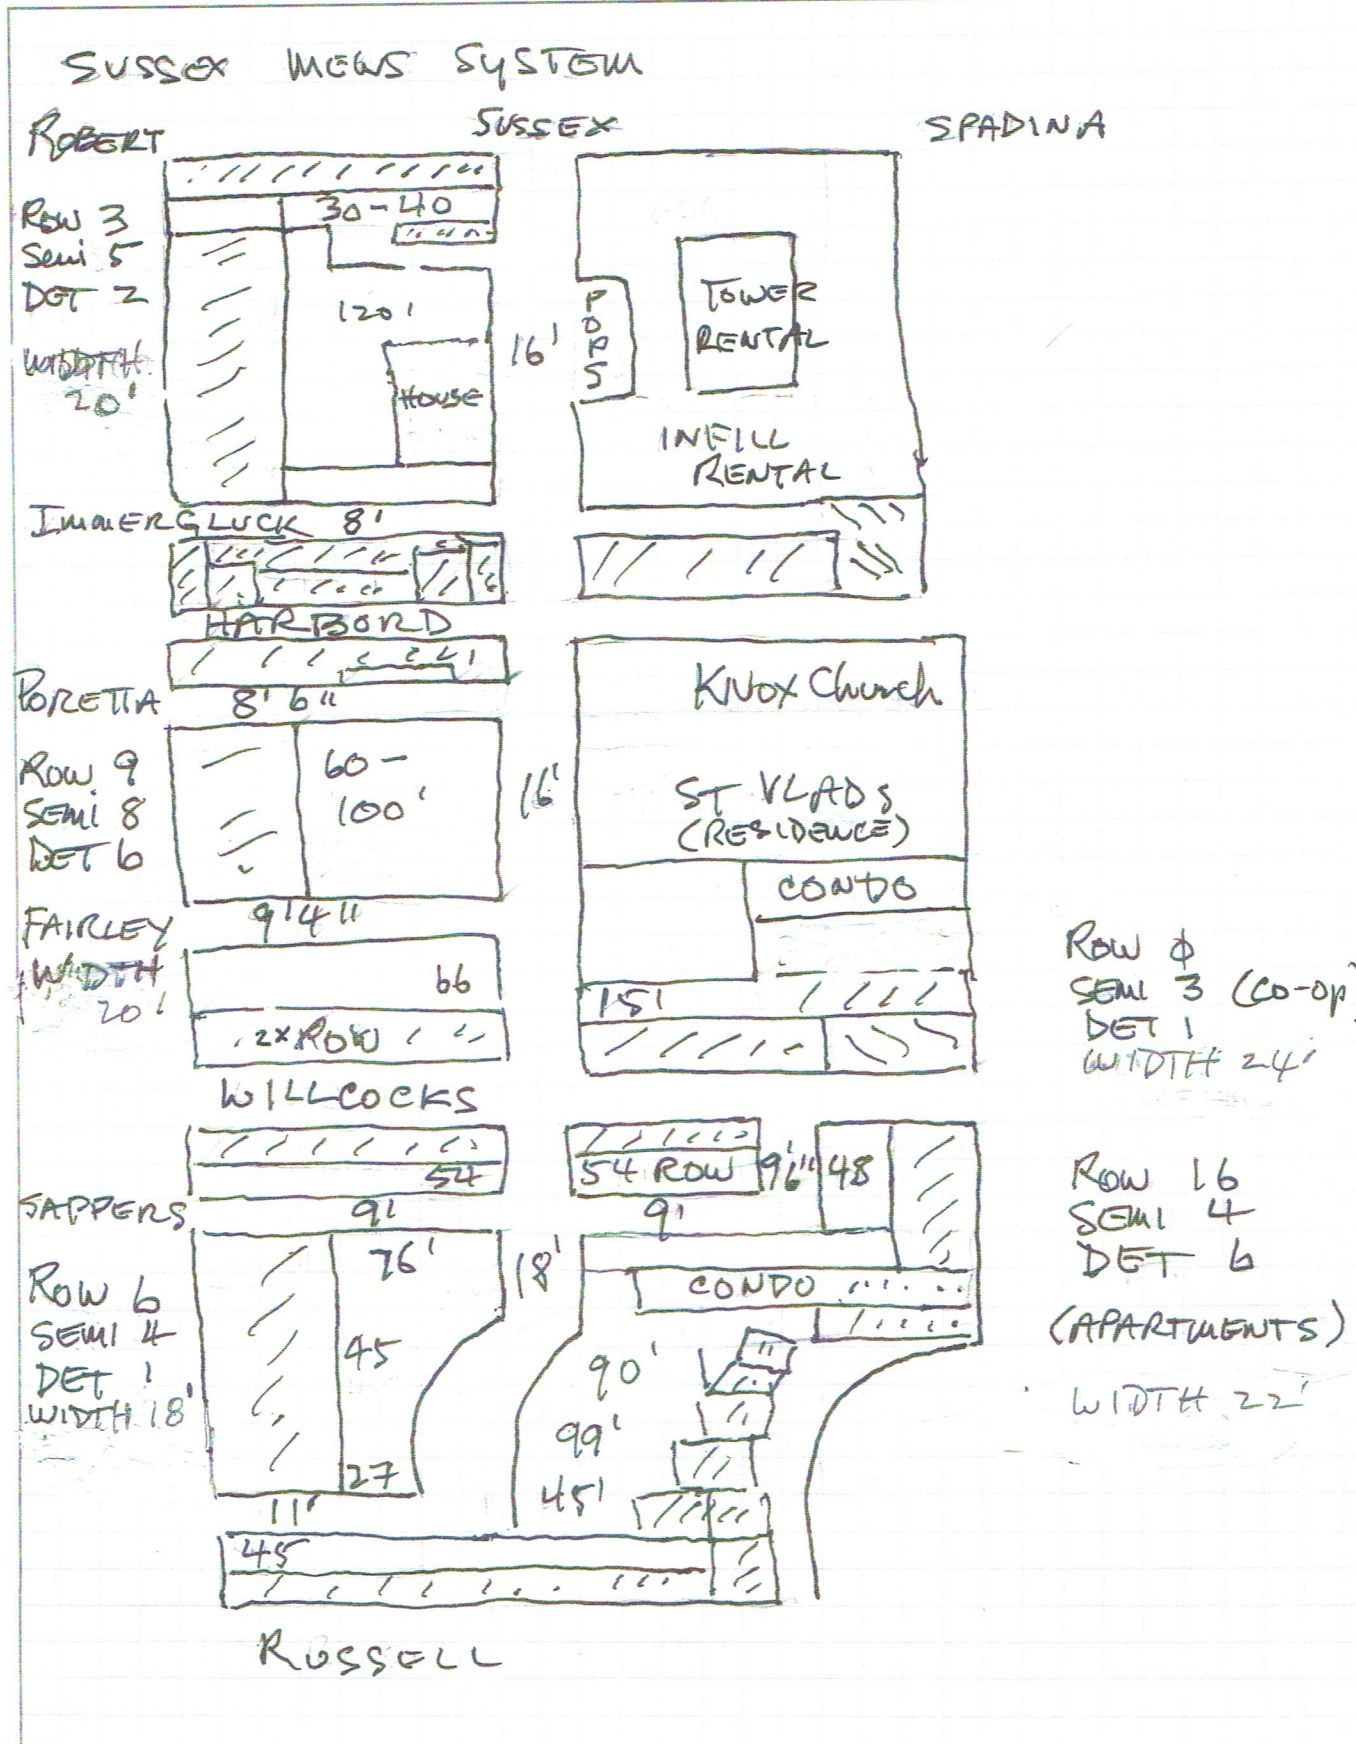 SUSSEX MEWS SYSTEM
ROBERT
SUSSEX
SPADINA
ROW 3
Semi 5
DET 2
WIDTH
20'
30-40
120'
HOUSE
16'
POPS
TOWER
RENTAL
INFILL
RENTAL
IMMERGLUCK 8'
HARBORD
PORETTA 8'6"
ROW 9
SEMI 8
DET 6
60-
100'
16'
KNOX Church
ST VLADS
(RESIDENCE)
CONDO
FAIRLEY 9'4"
WIDTH
20'
66
2x ROW
15'
ROW φ
SEMI 3 (CO-OP)
DET 1
WIDTH 24'
WILLCOCKS
54
54 ROW
9'6"
48
SAPPERS 9'
9'
ROW 6
SEMI 4
DET 1
WIDTH 18'
76'
45
27
18'
CONDO
90'
99'
45'
ROW 16
SEMI 4
DET 6
(APARTMENTS)
WIDTH 22'
11'
45
RUSSELL